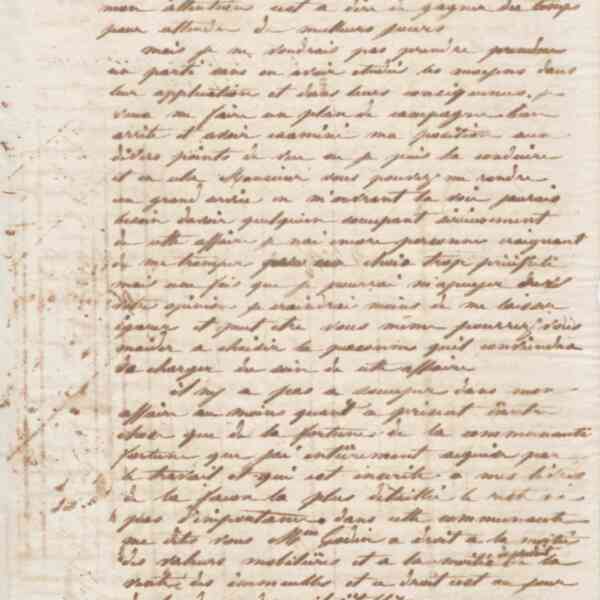 mon attention c'est a dire de gagner du temps
pour attendre de meilleurs jours
mais je ne voudrais pas prendre prendre
un parti sans en avoir etudié les moyens dans
leur application et dans leurs consequences. je
veux me faire un plan de campagne bien
arrêté et avoir examiné ma position aux
divers points de vue ou je puis la conduire
et en cela Monsieur vous pouvez me rendre
un grand service en m'ouvrant la voie j'aurais
besoin d'avoir quelqu'un s'occupant sérieusement
de cette affaire je n'ai encore personne craignant
de me tromper choix trop précipité
mais une fois que je pourrai m'apuyer sur
votre opinion je craindrai moins de me laisser
égarer et peut être vous même pourrez vous
m'aider a choisir la personne qu'il conviendra
de charger du soin de cette affaire
il n'y a pas a s'occuper dans mon
affaire au moins quand a présent d'autre
chose que de la fortune de la communauté
fortune que j'ai entièrement acquise par
le travail et qui est inscrite a mes livres
de la façon la plus détaillée le reste est
peu d'importance dans cette communauté
me dites vous Mme Godin a droit a la moitié
des valeurs mobilières et a la moitié de la
vente des immeubles et ce droit est au jour